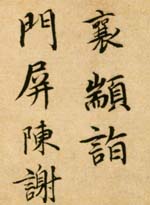 襄顓詣
門屏陳謝